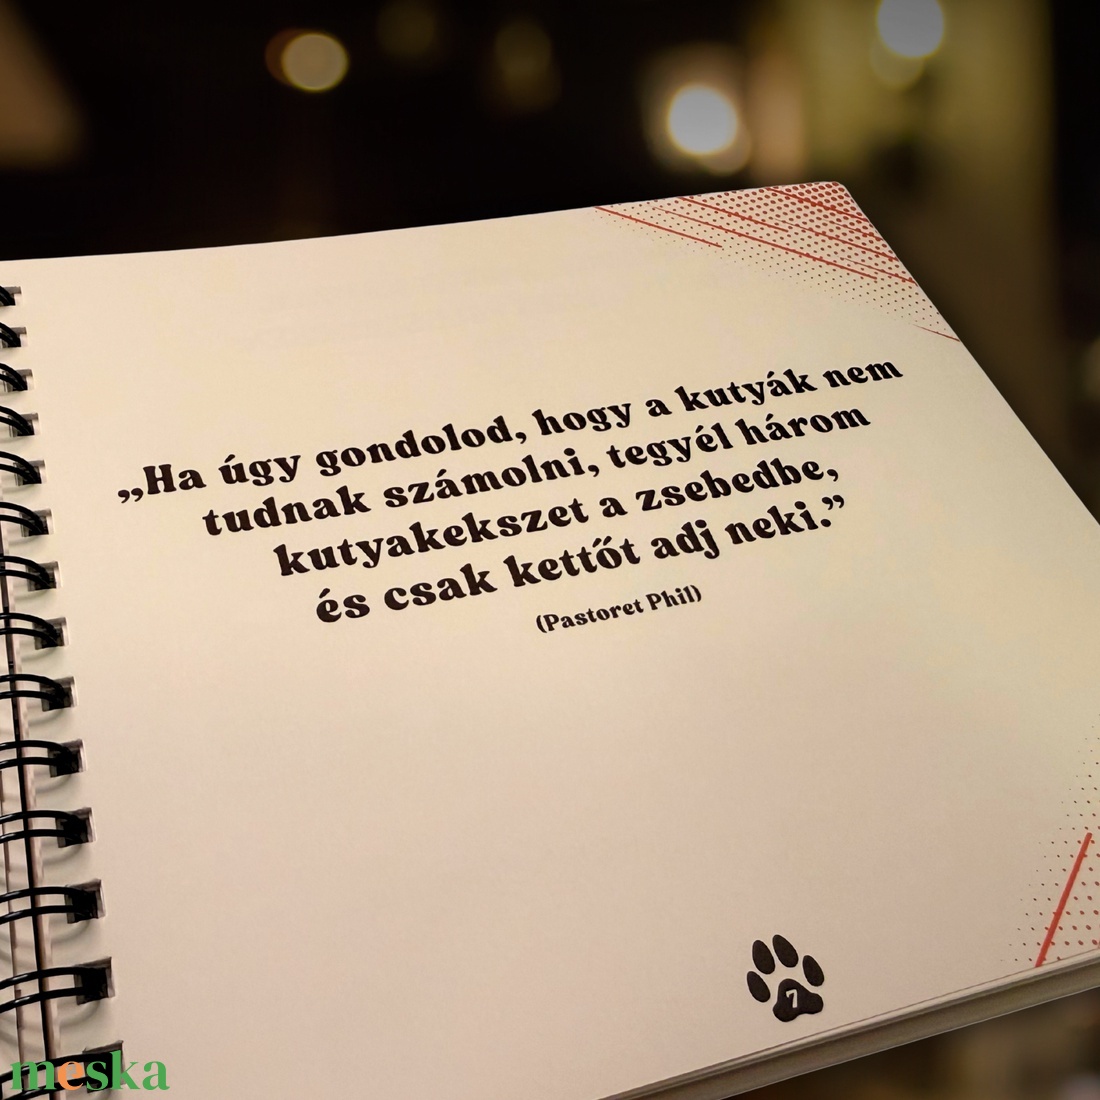 „Ha úgy gondolod, hogy a kutyák nem
tudnak számolni, tegyél három
kutyakekszet a zsebedbe,
és csak kettőt adj neki.”
(Pastoret Phil)
7
meska